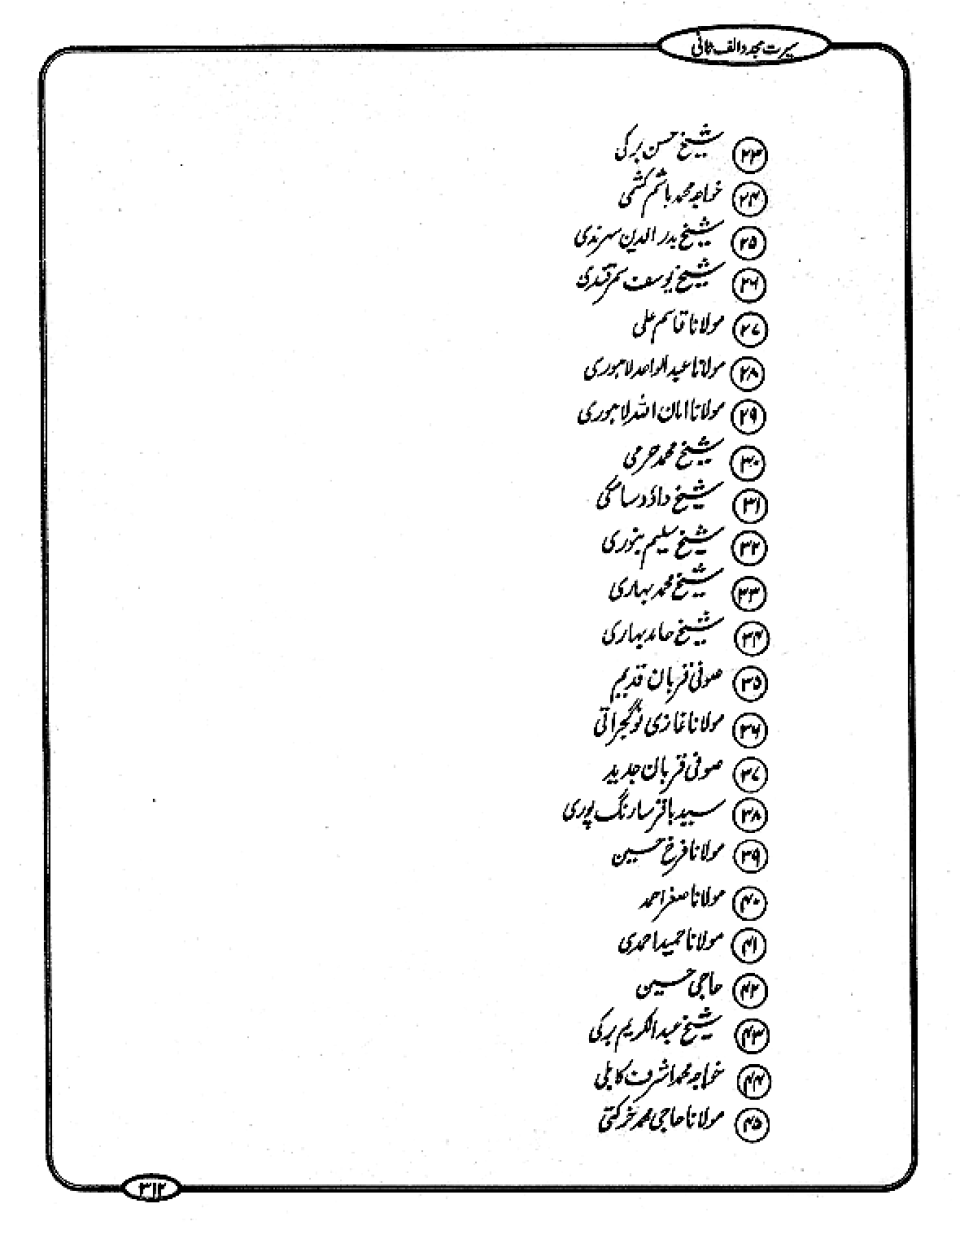 سیرت مجدد الف ثانیؒ
۲۳ شیخ حسن برکی
۲۴ خواجہ محمد ہاشم کشمی
۲۵ شیخ بدر الدین سہرندی
۲۶ شیخ یوسف سمرقندی
۲۷ مولانا قاسم علی
۲۸ مولانا عبدالواحد لاہوری
۲۹ مولانا امان اللہ لاہوری
۳۰ شیخ محمد حرمی
۳۱ شیخ داؤد سامکی
۳۲ شیخ سلیم بنوری
۳۳ شیخ محمد بہاری
۳۴ شیخ حامد بہاری
۳۵ صوفی قربان قدیم
۳۶ مولانا غازی نوگجراتی
۳۷ صوفی قربان جدید
۳۸ سید باقر سارنگ پوری
۳۹ مولانا فرخ حسین
۴۰ مولانا صفر احمد
۴۱ مولانا حمید احمدی
۴۲ حاجی حسین
۴۳ شیخ عبدالکریم برکی
۴۴ خواجہ محمد اشرف کابلی
۴۵ مولانا حاجی محمد فرکتی
۳۱۲